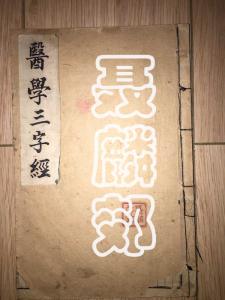 醫學三字經
聶麟郊